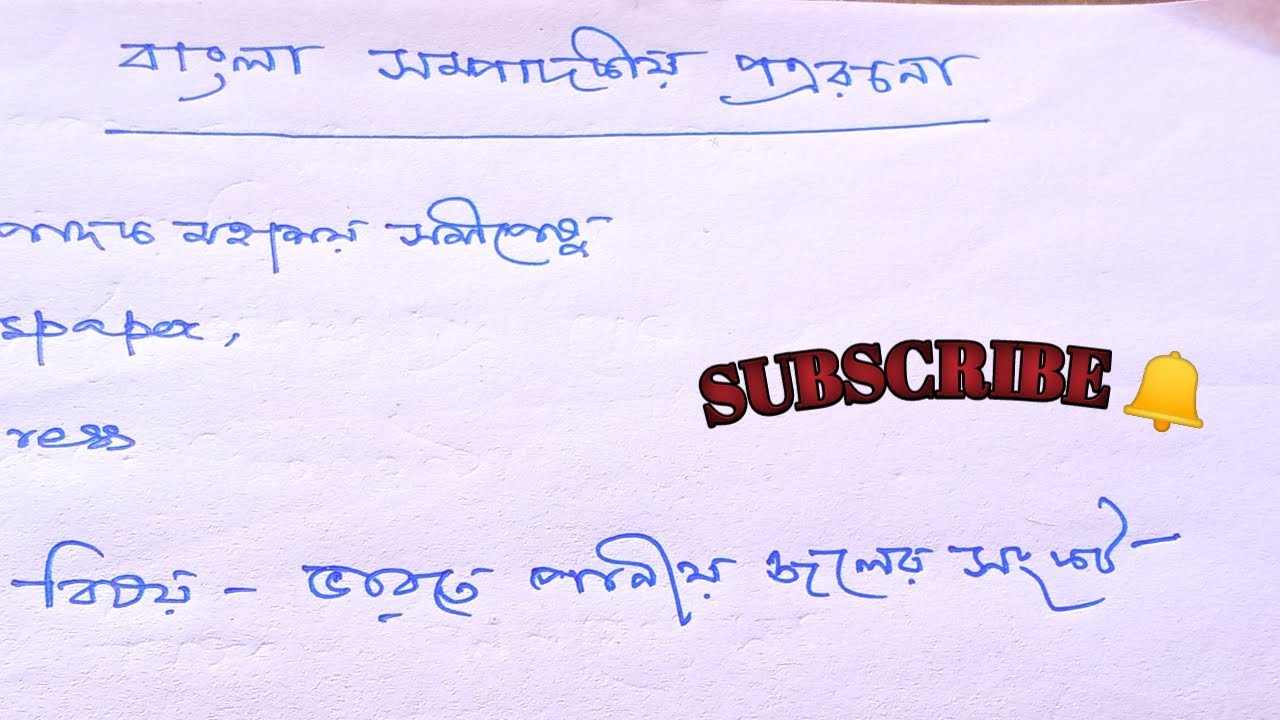 বাংলা সম্পাদকীয় পত্ররচনা
পাদক মহাশয় সমীপেষু
spaper,
SUBSCRIBE
ress
বিষয় - ভারতে পানীয় জলের সংকট